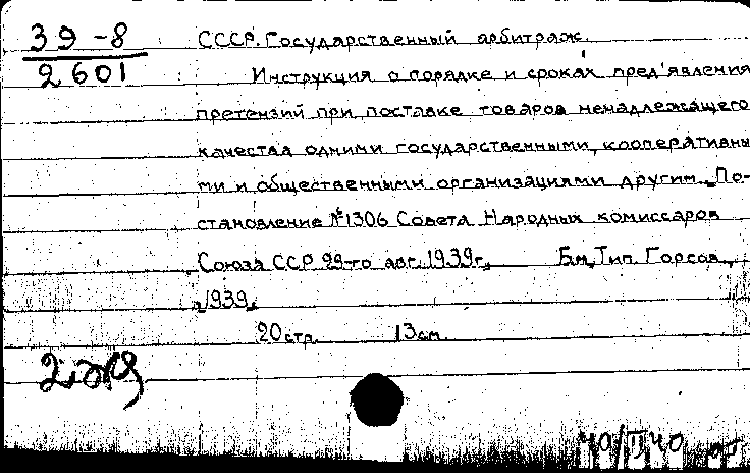 39-8
2601
СССР. Государственный арбитраж.
Инструкция о порядке и сроках пред'явления
претензий при поставке товаров ненадлежащего
качества одними государственными, кооперативны
ми и общественными организациями другим. По-
становление №1306 Совета Народных комиссаров
Союза ССР 29-го авг. 1939г. Б.м. Тип. Горсов.
1939.
20стр. 13см.